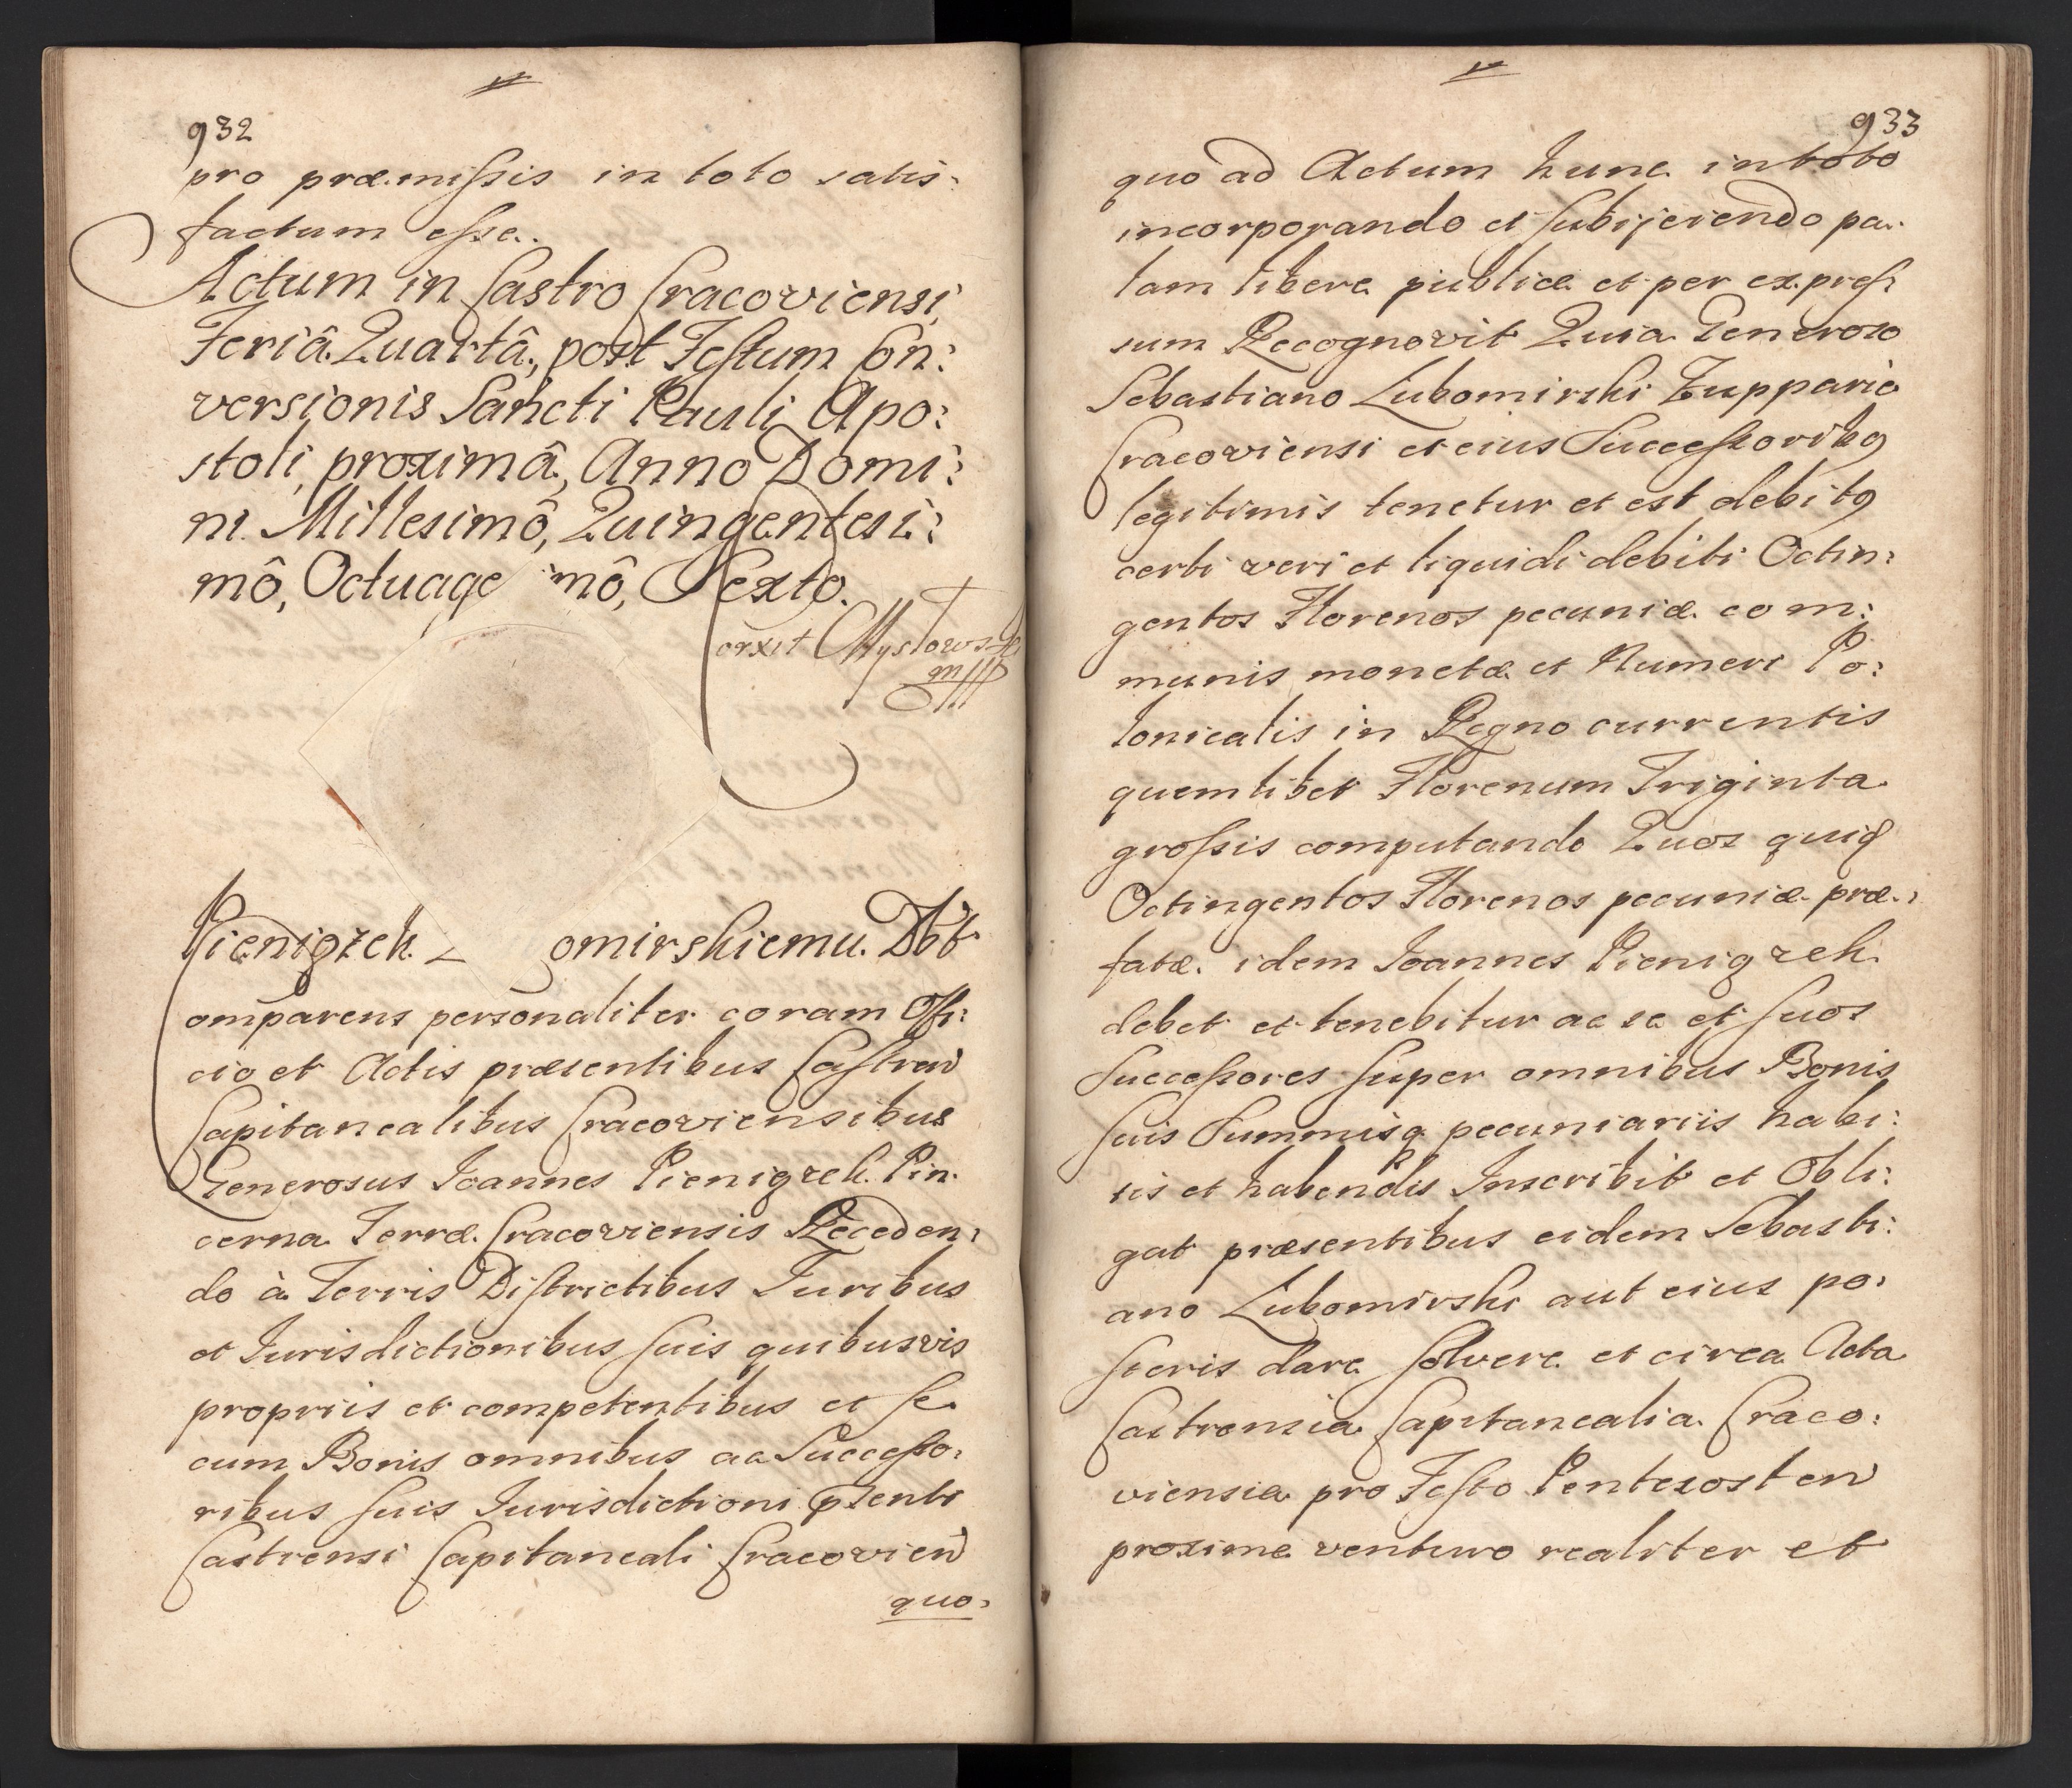 932
pro præmissis in toto satis:
factum esse.
Actum in Castro Cracoviensi,
Feriâ Quartâ, post Festum Con:
versionis Sancti Pauli Apo:
stoli, proximâ, Anno Domi:
ni Millesimô, Quingentesi:
mô, Octuage mô, Sexto.
Pieniązek omirskiemu Dbt
omparens personaliter coram Offi:
cio et Actis præsentibus Castren
Capitanealibus Cracoviensibus
Generosus Joannes Pieniązek Pin:
cerna Terræ Cracoviensis Receden:
do à Terris Districtibus Juribus
et Jurisdictionibus suis quibusvis
propriis et competentibus et se
cum Bonis omnibus ac Successo:
ribus suis Jurisdictioni pnti
Castrensi Capitaneali Cracovien
quo:
933
quo ad Actum hunc in toto
incorporando et subijciendo pa:
lam libere publice et per expres
sum Recognovit Quia Generoso
Sebastiano Lubomirski Zuppario
Cracoviensi et eius Successoribg
legitimis tenetur et est debitg
certi veri et liquidi debiti Octin:
gentos Florenos pecuniæ com:
munis monetæ et Numeri Po:
lonicalis in Regno currentis
quemlibet Florenum Triginta
grossis computando Quos quiq
Octingentos Florenos pecuniæ præ:
fatæ idem Joannes Pieniązek
debet et tenebitur ac se et suos
Successores super omnibus Bonis
suis Summisq pecuniariis habi:
tis et habendis Inscribit et Obli:
gat præsentibus eidem Sebasti:
ano Lubomirski aut eius po:
steris dare solvere et circa Acta
Castrensia Capitanealia Craco:
viensia pro Festo Pentecosten
proxime venturo realiter et